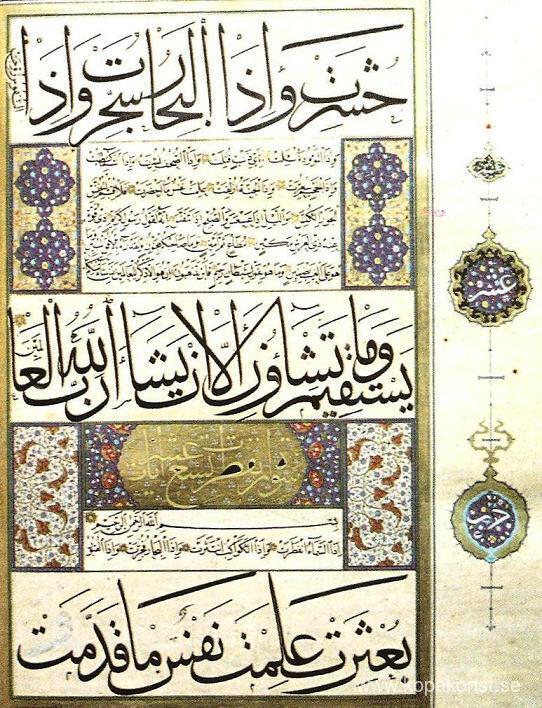 حُشِرَتْ وَاِذَا الْبِحَارُ سُجِّرَتْ وَاِذَا
النفوس زوجت
وَاِذَا الْمَوْءُودَةُ سُئِلَتْ بِاَيِّ ذَنْبٍ قُتِلَتْ وَاِذَا الصُّحُفُ نُشِرَتْ وَاِذَا السَّمَاءُ كُشِطَتْ
وَاِذَا الْجَحِيمُ سُعِّرَتْ وَاِذَا الْجَنَّةُ اُزْلِفَتْ عَلِمَتْ نَفْسٌ مَا اَحْضَرَتْ فَلَا اُقْسِمُ بِالْخُنَّسِ
الْجَوَارِ الْكُنَّسِ وَاللَّيْلِ اِذَا عَسْعَسَ وَالصُّبْحِ اِذَا تَنَفَّسَ اِنَّهُ لَقَوْلُ رَسُولٍ كَرِيمٍ ذِي قُوَّةٍ
عِنْدَ ذِي الْعَرْشِ مَكِينٍ مُطَاعٍ ثَمَّ اَمِينٍ وَمَا صَاحِبُكُمْ بِمَجْنُونٍ وَلَقَدْ رَآهُ بِالْاُفُقِ الْمُبِينِ وَمَا
هُوَ عَلَى الْغَيْبِ بِضَنِينٍ وَمَا هُوَ بِقَوْلِ شَيْطَانٍ رَجِيمٍ فَاَيْنَ تَذْهَبُونَ اِنْ هُوَ اِلَّا ذِكْرٌ لِلْعَالَمِينَ لِمَنْ شَاءَ مِنْكُمْ اَنْ
يَسْتَقِيمَ وَمَا تَشَاؤُنَ اِلَّا اَنْ يَشَاءَ اللّٰهُ رَبُّ الْعَالَمِينَ
عشر
سورة انفطرت تسع عشر ايات
بِسْمِ اللّٰهِ الرَّحْمٰنِ الرَّحِيمِ
اِذَا السَّمَاءُ انْفَطَرَتْ وَاِذَا الْكَوَاكِبُ انْتَثَرَتْ وَاِذَا الْبِحَارُ فُجِّرَتْ وَاِذَا الْقُبُورُ
حزب
بُعْثِرَتْ عَلِمَتْ نَفْسٌ مَا قَدَّمَتْ
www.kopakonst.se